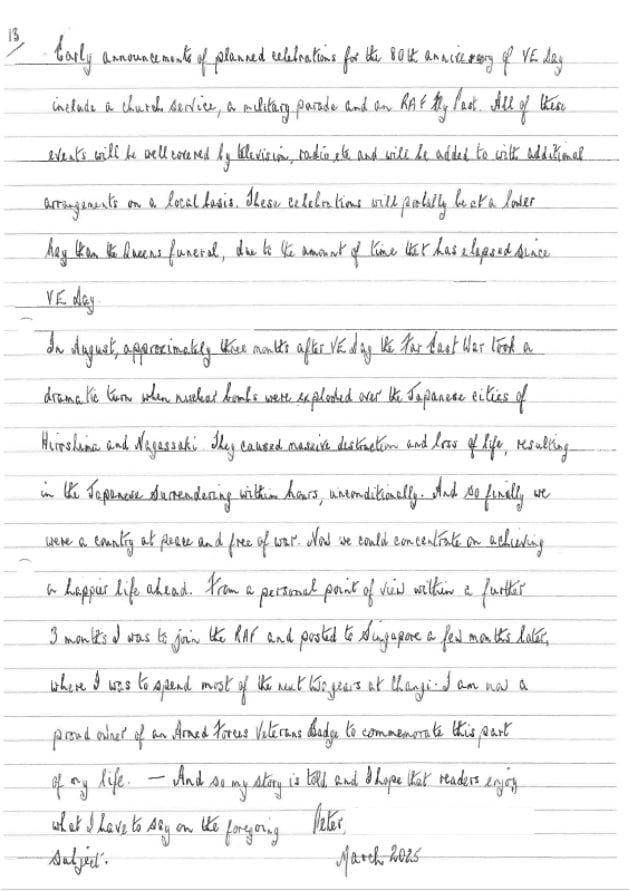 13
Early announcements of planned celebrations for the 80th anniversary of VE Day
include a church service, a military parade and an RAF fly Past. All of these
events will be well covered by television, radio etc and will be added to with additional
arrangements on a local basis. These celebrations will probally be at a lower
key than the Queens funeral, due to the amount of time that has elapsed since
VE Day.
In August, approximately three months after VE Day the Far East War took a
dramatic turn when nuclear bombs were exploded over the Japanese cities of
Hiroshima and Nagassaki. They caused massive destruction and loss of life, resulting
in the Japanese surrendering within hours, unconditionally. And so finally we
were a country at peace and free of war. Now we could concentrate on achieving
a happier life ahead. From a personal point of view within a further
3 months I was to join the RAF and posted to Singapore a few months later,
where I was to spend most of the next two years at Changi. I am now a
proud owner of an Armed Forces Veterans Badge to commemorate this part
of my life. — And so my story is told and I hope that readers enjoy
what I have to say on the foregoing Peter,
subject. March 2025